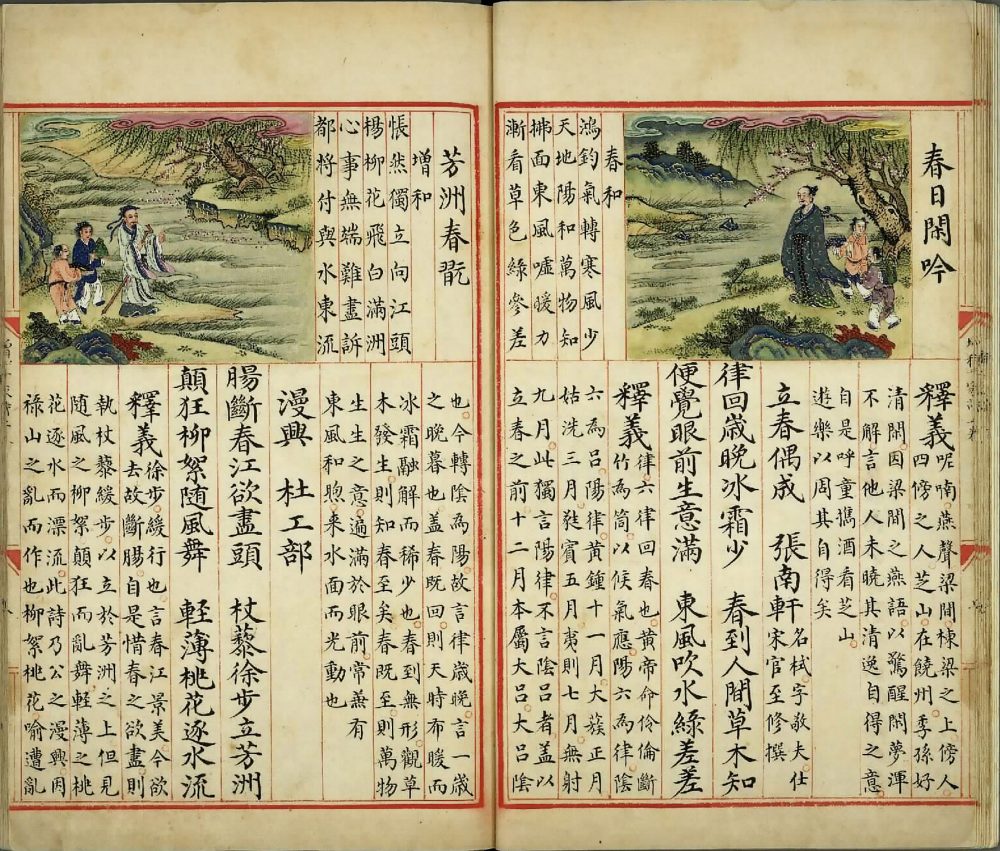 春日閑吟
春和
鴻鈞氣轉寒風少
天地陽和萬物知
拂面東風噓暖力
漸看草色綠參差
釋義呢喃燕聲梁間棟梁之上傍人
四傍之人芝山在饒州季孫好
清閑因梁間之燕語以驚醒閑夢渾
不解言他人未曉其清逸自得之意
自是呼重擕酒看芝山
遊樂以周其自得矣
立春偶成 張南軒 名栻字敬夫仕
宋官至修撰
律回歲晚冰霜少 春到人間草木知
便覺眼前生意滿 東風吹水綠差差
釋義律六律回春也黃帝命伶倫斷
竹為筒以候氣應陽六為律陰
六為呂陽律黃鐘十一月大簇正月
姑洗三月蕤賓五月夷則七月無射
九月此獨言陽律不言陰呂者蓋以
立春之前十二月本屬大呂大呂陰
芳洲春翫
增和
悵然獨立向江頭
楊柳花飛白滿洲
心事無端難盡訴
都將付與水東流
也今轉陰為陽故言律歲晚言一歲
之晚暮也蓋春既回則天時布暖而
冰霜融解而稀少也春到無形觀草
木發生則知春至矣春既至則萬物
生生之意遍滿於眼前常蕪有
東風和煦來水面而光動也
漫興 杜工部
腸斷春江欲盡頭 杖藜徐步立芳洲
顛狂柳絮随風舞 輕薄桃花逐水流
釋義徐步緩行也言春江景美今欲
去故斷腸自是惜春之欲盡則
執杖藜緩步以立於芳洲之上但見
随風之柳絮顛狂而亂舞輕薄之桃
花逐水而漂流此詩乃公之漫興因
祿山之亂而作也柳絮桃花喻遭亂